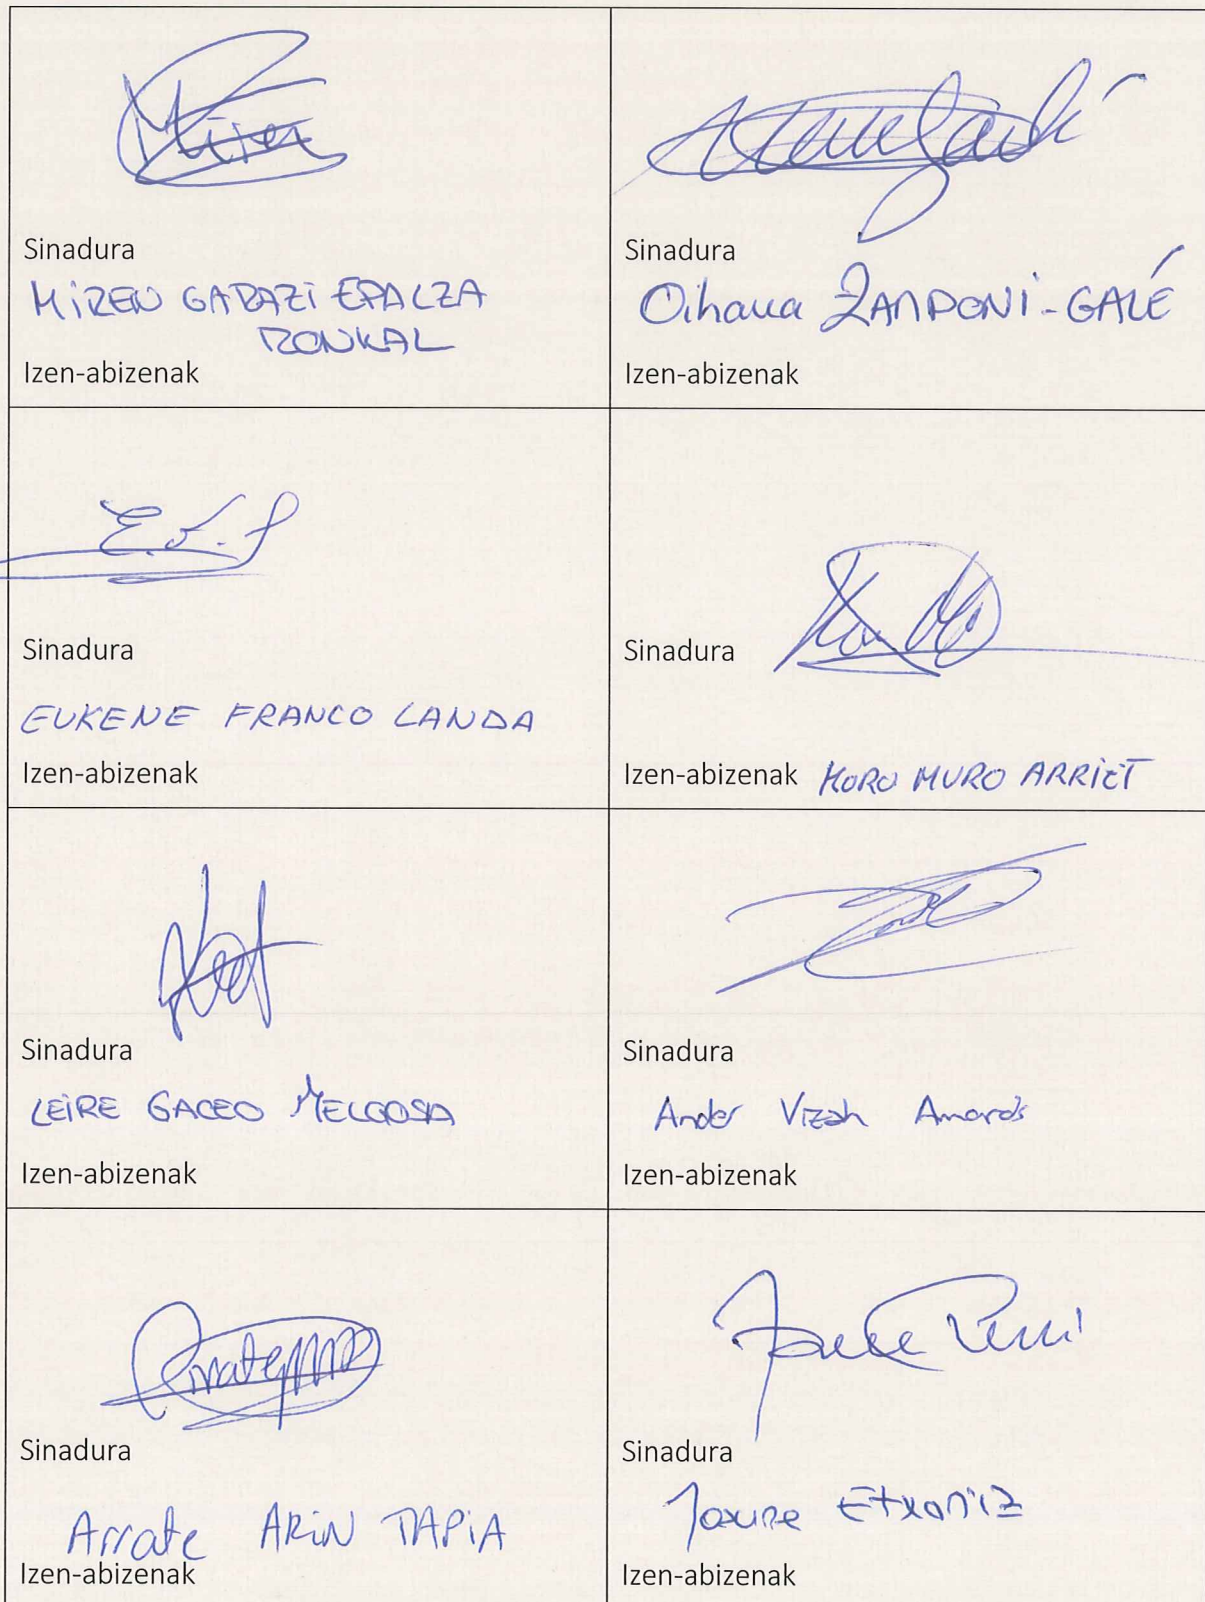 Miren
Sinadura
MIREN GARAZI EPALZA
RONKAL
Izen-abizenak
Sinadura
Oihana ZANPONI-GALÉ
Izen-abizenak
E.F.
Sinadura
EUKENE FRANCO LANDA
Izen-abizenak
Sinadura
Izen-abizenak MORU MURO ARRIET
Sinadura
LEIRE GACEO MELGOSA
Izen-abizenak
Sinadura
Ander Amorós
Izen-abizenak
Arrate
Sinadura
Arrate ARIN TAPIA
Izen-abizenak
Sinadura
Joxune Etxaniz
Izen-abizenak